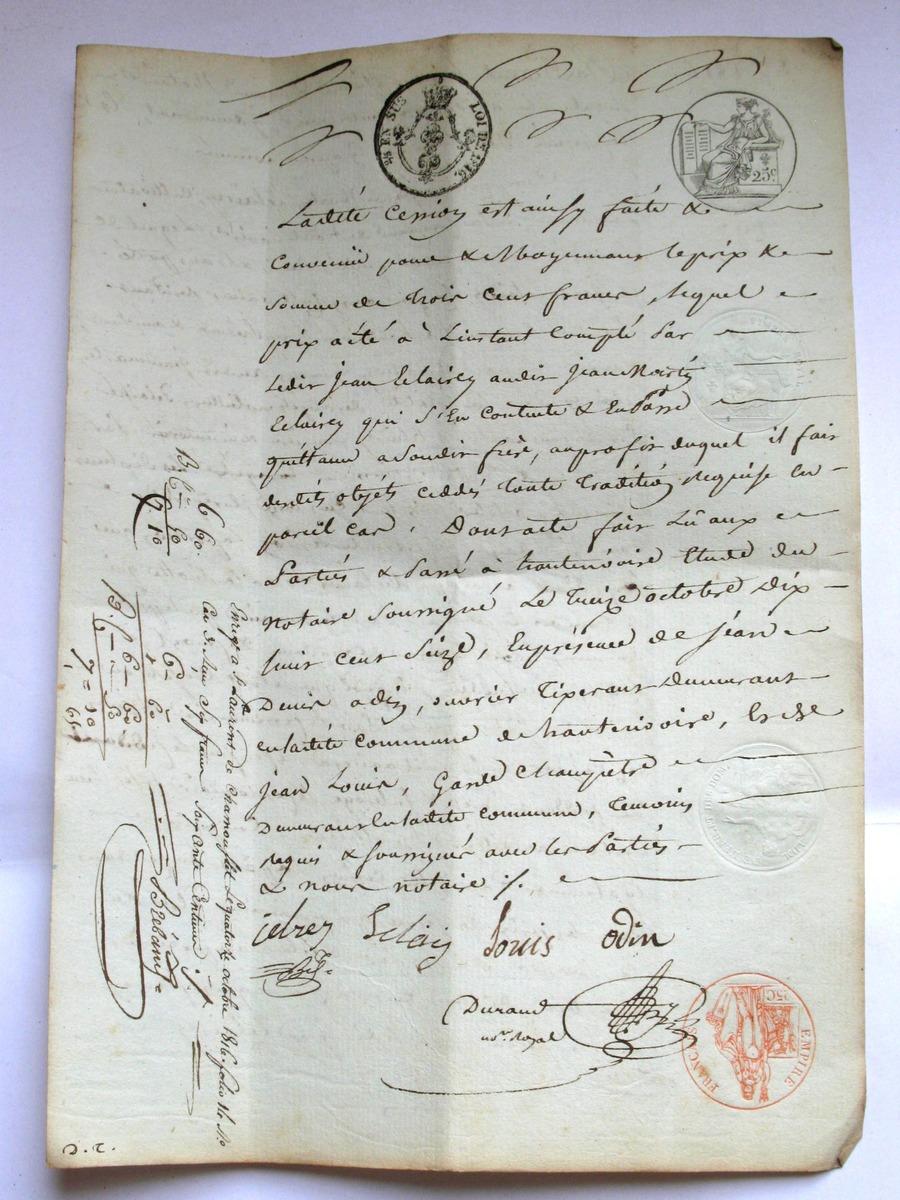 25 EN SUS LOI DE 1816.
25.c
Ladité Cession est ainsy faite &
convenüe pour & Moyennant le prix &
somme de trois cent francs, lequel
prix a été à L'instant compté Par
Ledit Jean Eclaircy audit Jean
Eclaircy qui S'En Contente & En Passe
quittance a Soudit frère, au profit duquel il fait
desdits objets cédés toute tradition requise en
pareil cas. Dont acte fait Lû aux
Partiés & Passé à hauterivoire Etude du
Notaire Soussigné Le treize octobre Dix
huit cent Seize, En présence de Jean
Denis odin, ouvrier Tixerant Demeurant
en ladite commune de hauterivoire, &
Jean Louis, Garde Champêtre
Demeurant En ladite commune, Temoins
requis & Soussignés avec les Partiés
& nous notaire ./.
Louis odin
Durand
no.re Royal
EMPIRE FRANÇAIS
25C
B. 6 —
60
6 60.
Enreg.é à St Laurent de Chamousset Le quatorze octobre 1816 folio 14 N.o
six francs soixante Centimes ./.
6 —
60
6 60
B. 6 — 60